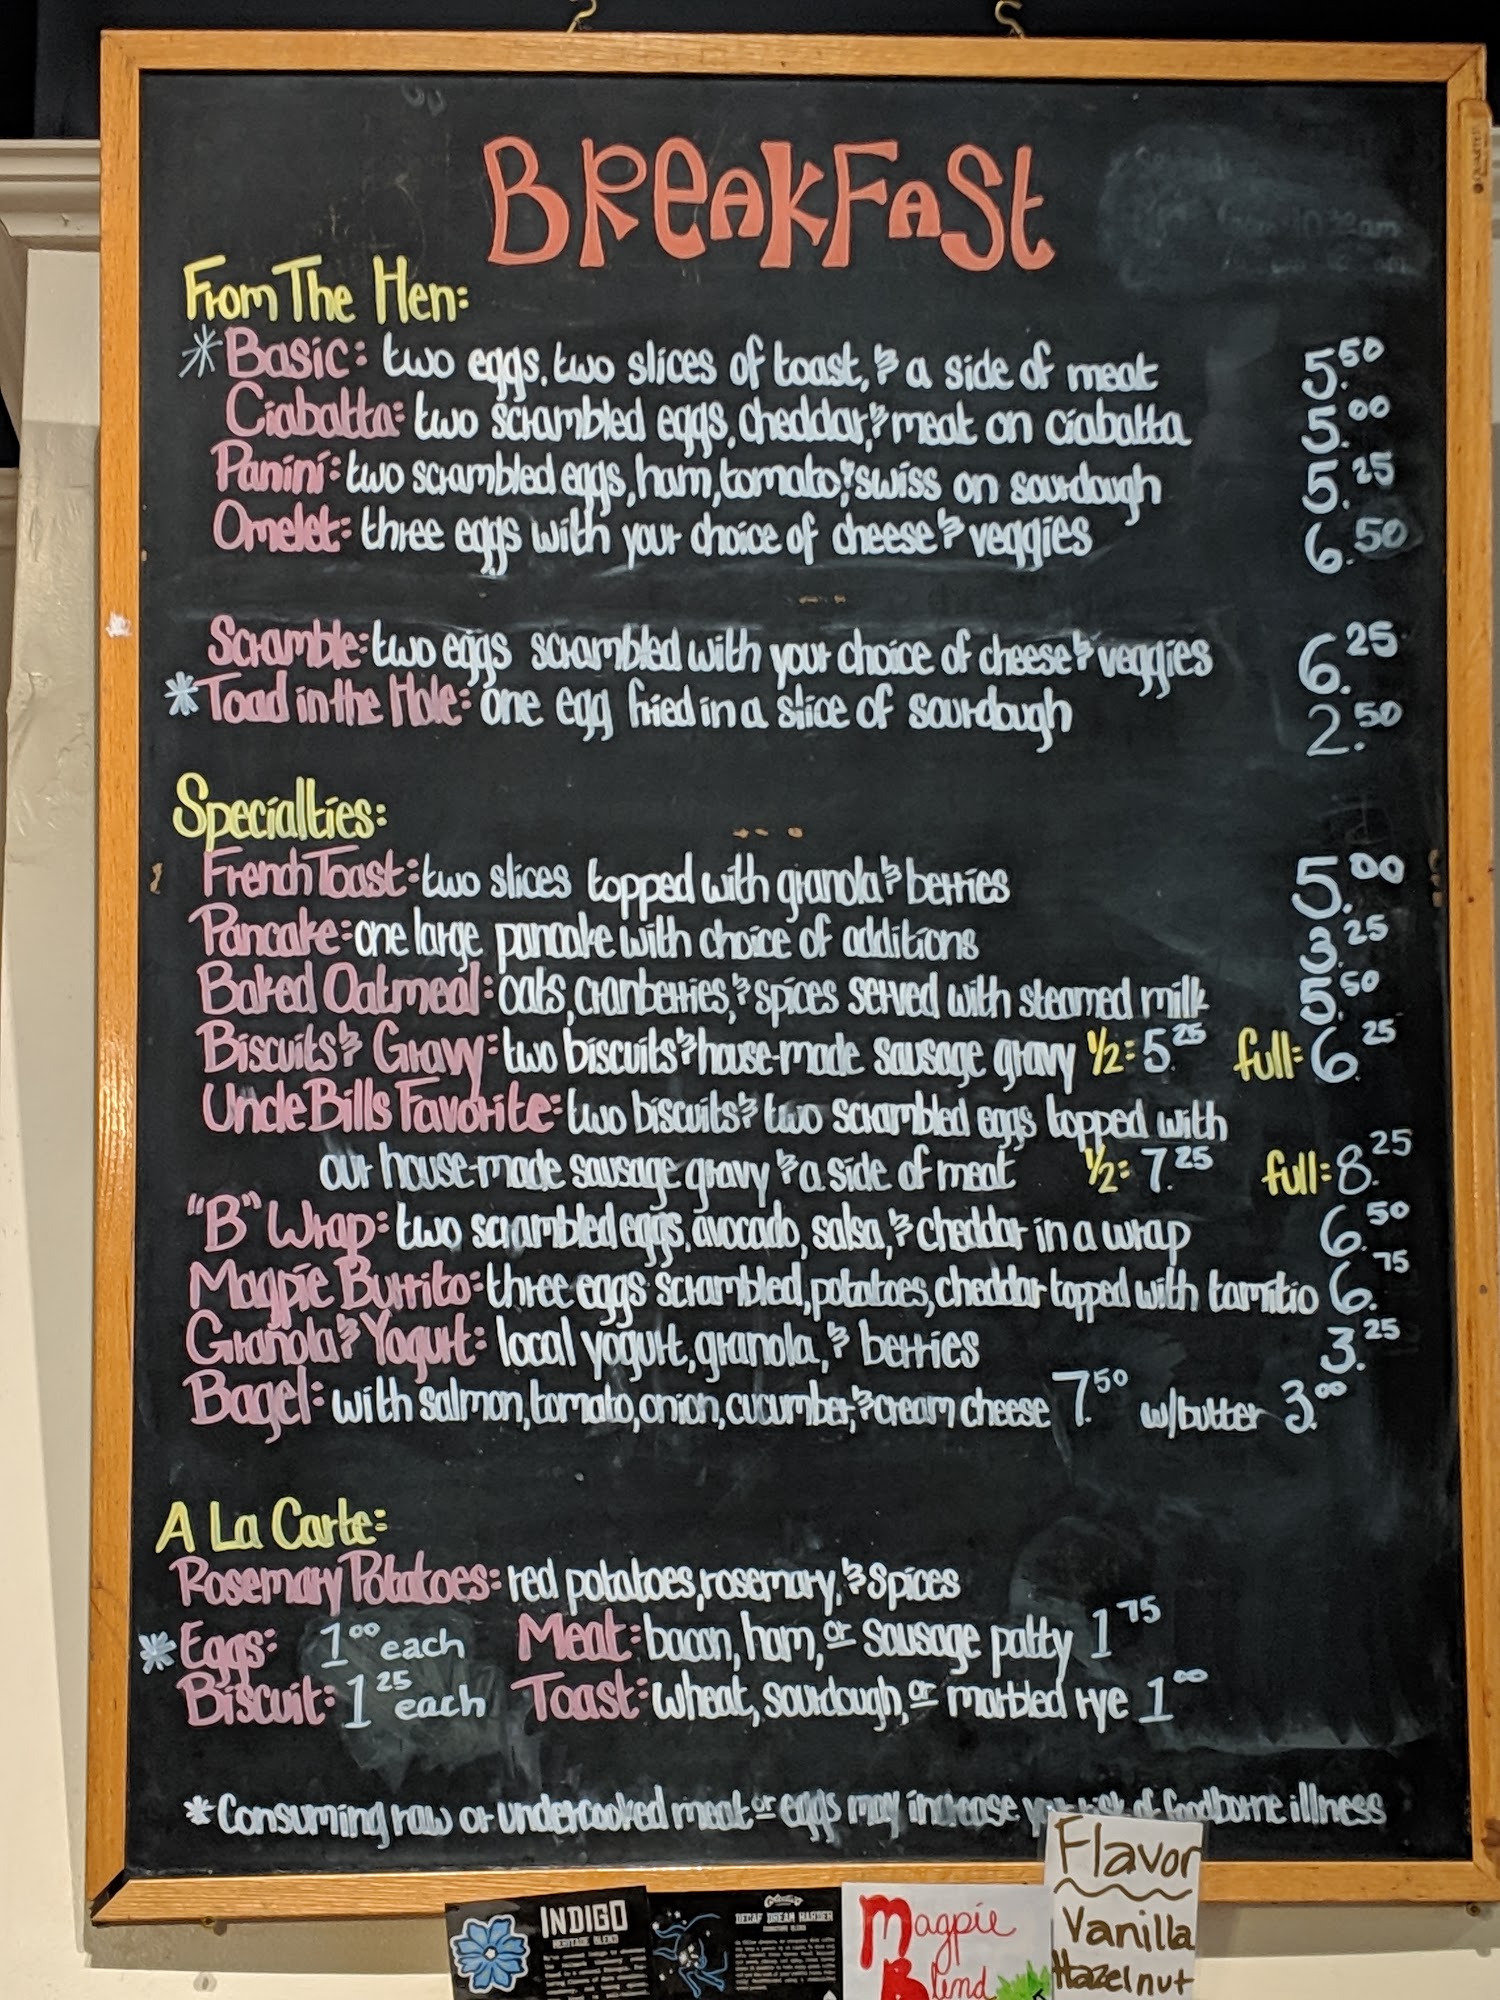 BREAKFAST
From The Hen:
*Basic: two eggs, two slices of toast, & a side of meat 5.50
Ciabatta: two scrambled eggs, cheddar, & meat on ciabatta 5.00
Panini: two scrambled eggs, ham, tomato, & swiss on sourdough 5.25
Omelet: three eggs with your choice of cheese & veggies 6.50
Scramble: two eggs scrambled with your choice of cheese & veggies 6.25
*Toad in the Hole: one egg fried in a slice of sourdough 2.50
Specialties:
French Toast: two slices topped with granola & berries 5.00
Pancake: one large pancake with choice of additions 3.25
Baked Oatmeal: oats, cranberries, & spices served with steamed milk 5.50
Biscuits & Gravy: two biscuits & house-made sausage gravy 1/2: 5.25 full: 6.25
Uncle Bills Favorite: two biscuits & two scrambled eggs topped with
our house-made sausage gravy & a side of meat 1/2: 7.25 full: 8.25
"B" Wrap: two scrambled eggs, avocado, salsa, & cheddar in a wrap 6.50
Magpie Burrito: three eggs scrambled, potatoes, cheddar topped with tamitio 6.75
Granola & Yogurt: local yogurt, granola, & berries 3.25
Bagel: with salmon, tomato, onion, cucumber, & cream cheese 7.50 w/butter 3.00
A La Carte:
Rosemary Potatoes: red potatoes, rosemary, & spices
*Eggs: 1.00 each Meat: bacon, ham, or sausage patty 1.75
Biscuit: 1.25 each Toast: wheat, sourdough, or marbled rye 1.00
*Consuming raw or undercooked meat or eggs may increase your risk of foodborne illness
INDIGO
HERITAGE BLEND
DECAF DREAM HARDER
Magpie
Blend
Flavor
Vanilla
Hazelnut